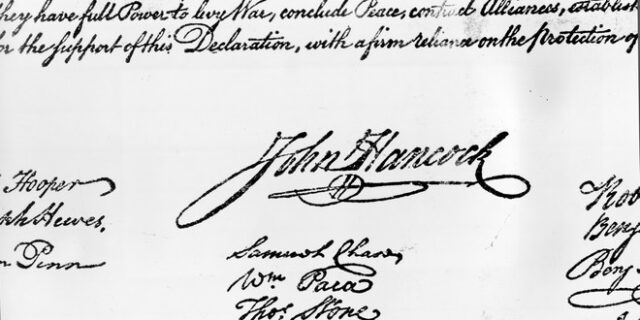 they have full Power to levy War, conclude Peace, contract Alliances, establish
for the support of this Declaration, with a firm reliance on the Protection of
John Hancock
Hooper
Hewes,
Penn
Samuel Chase
Wm. Paca
Thos. Stone
Benj